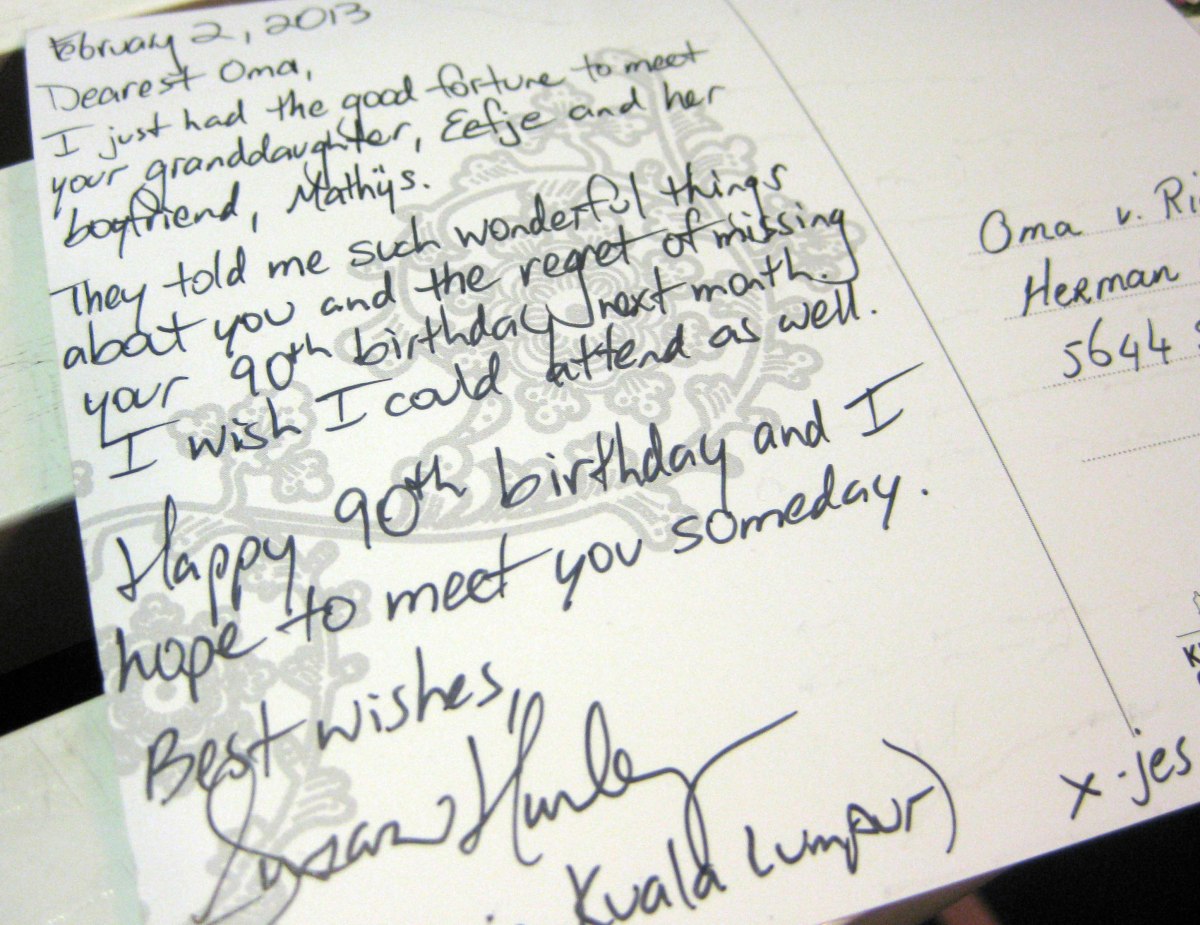 February 2, 2013
Dearest Oma,
I just had the good fortune to meet
your granddaughter, Eefje and her
boyfriend, Mathijs.
They told me such wonderful things
about you and the regret of missing
your 90th birthday next month.
I wish I could attend as well.
Happy 90th birthday and I
hope to meet you someday.
Best wishes,
Susan
Kuala Lumpur)
Oma v.
Herman
5644
x-jes